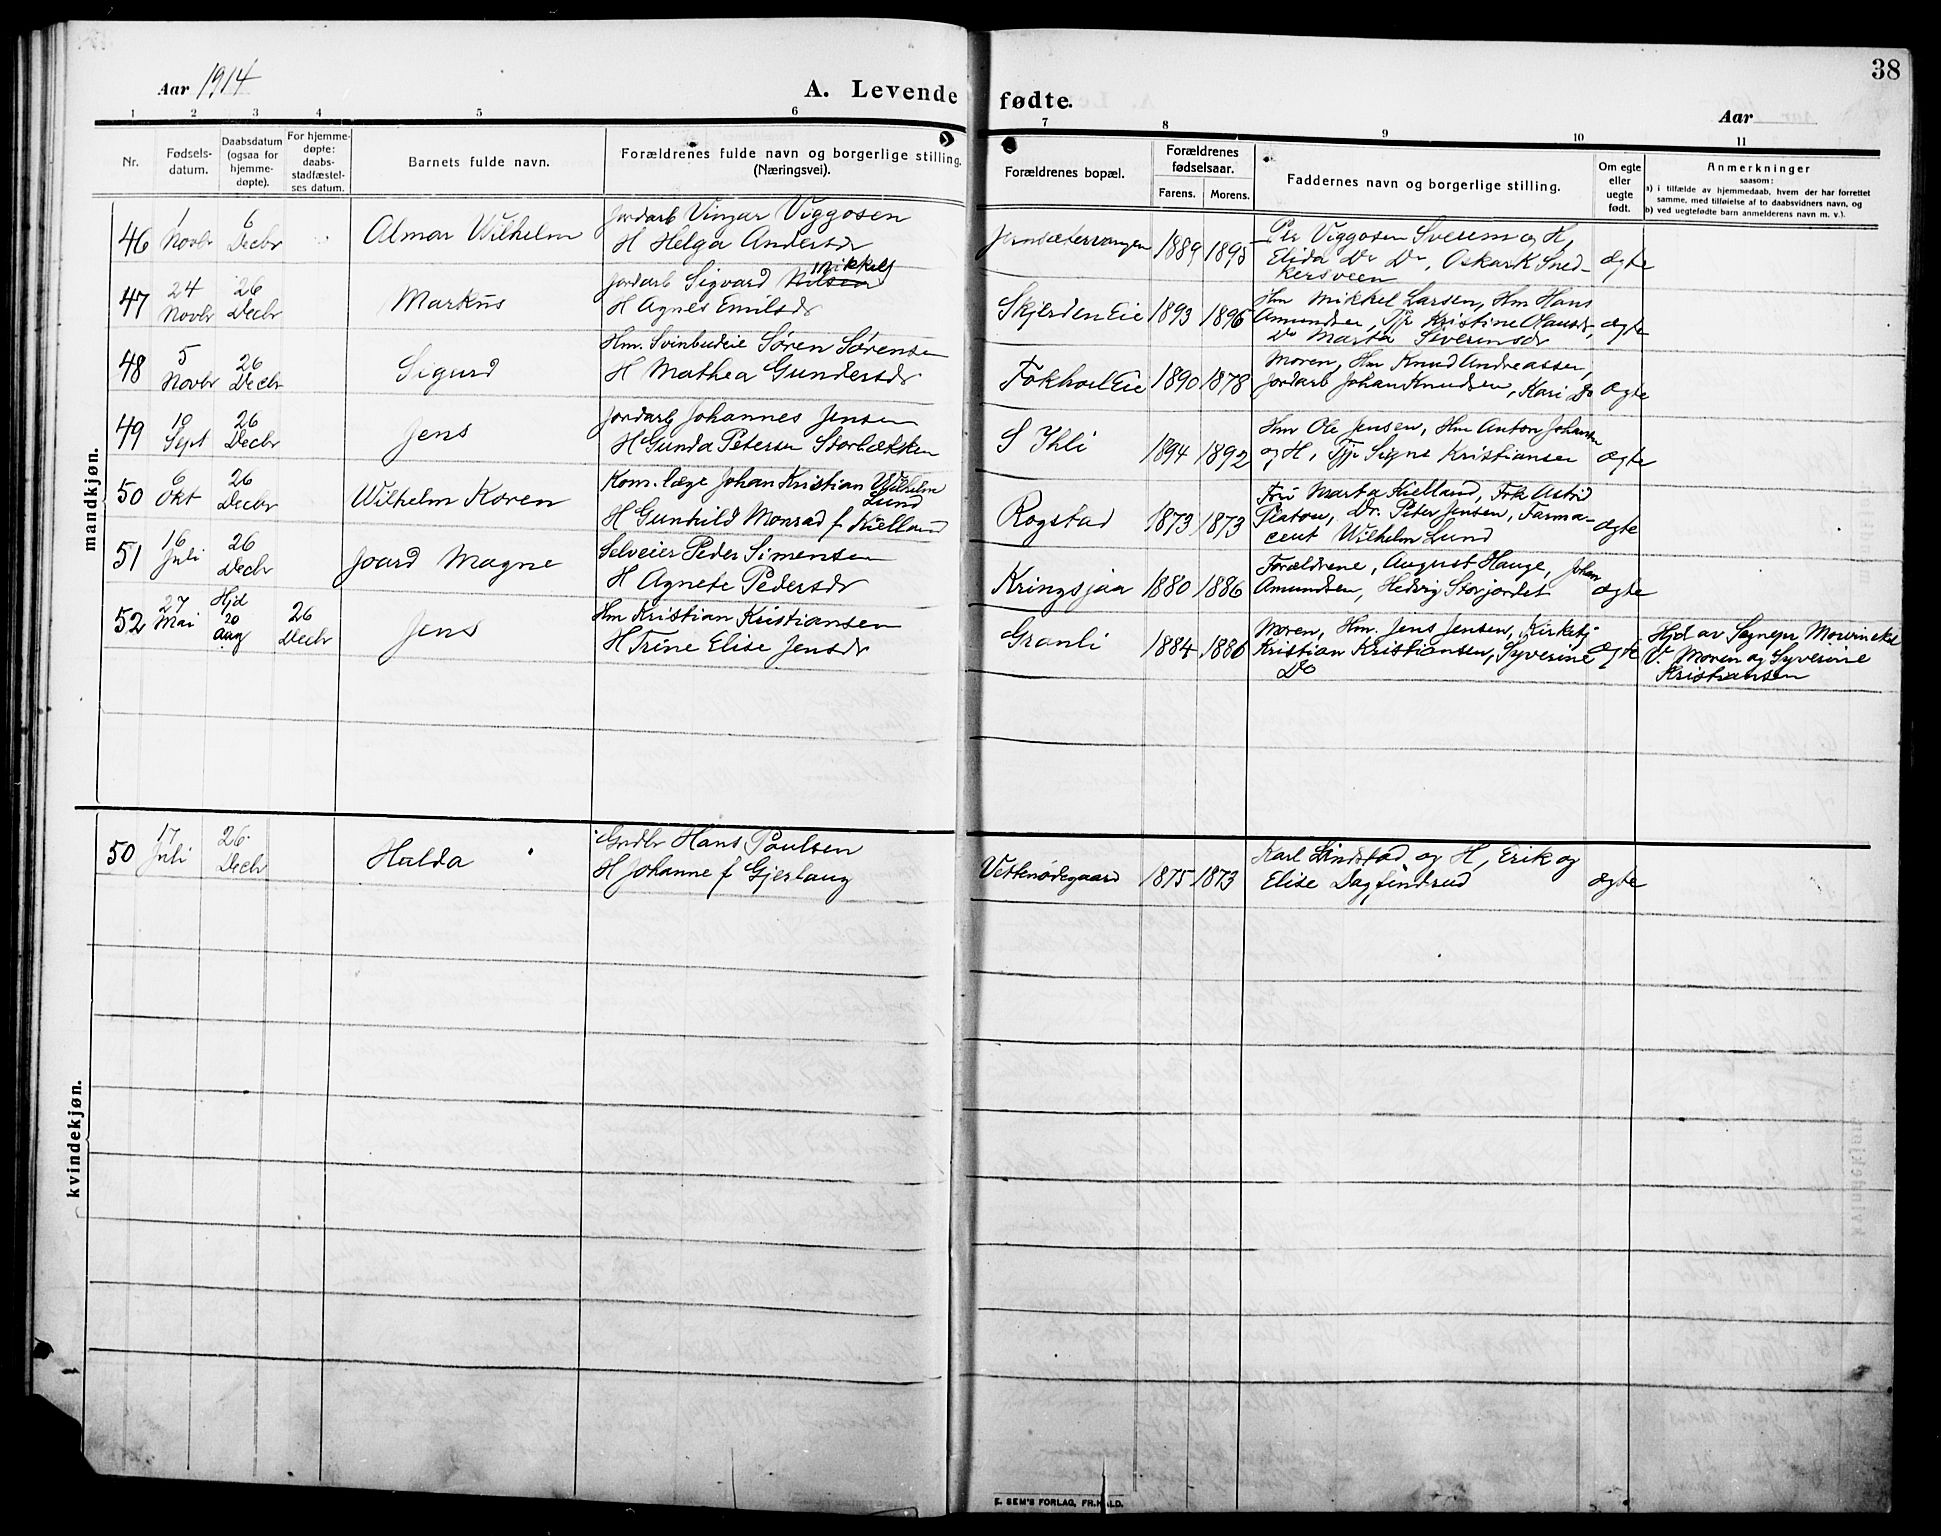 38
Aar 1914
A. Levende fødte.
Aar
1 2 3 4 5 6 7 8 9 10 11
Nr.
Fødsels-
datum.
Daabsdatum
(ogsaa for
hjemme-
døpte).
For hjemme-
døpte:
daabs-
stadfæstel-
ses datum.
Barnets fulde navn.
Forældrenes fulde navn og borgerlige stilling.
(Næringsvei).
Forældrenes bopæl.
Forældrenes
fødselsaar.
Farens. Morens.
Faddernes navn og borgerlige stilling.
Om egte
eller
uegte
født.
Anmerkninger
saasom:
a) i tilfælde av hjemmedaab, hvem der har forrettet
samme, med tilføielse af to daabsvidners navn, og
b) ved uegtefødte barn anmelderens navn m. v.).
mandkjøn.
46
1 Novbr
6 Decbr
Almar Wilhelm
Jordarb Vimar Viggosen
H Helga Andersdr
1889 1895
Per Viggosen Sveen og H,
Elida Do Do, Oskar K Sned-
kersveen
ægte
47
24 Novbr
26 Decbr
Markus
Jordarb Sigvard Nilsen Mikkels
H Agnes Emilsdr
Skjerden Eie
1893 1896
Hm Mikkel Larsen, Hm Hans
Amundsen, Tjp Kristine Olausdr,
Do Marta Siverinsdr
ægte
48
5 Novbr
26 Decbr
Sigurd
Hm. Svinbudeie Søren Sørensen
H Mathea Gundersdr
Fokhol Eie
1890 1878
Moren, Hm Knud Andreassen,
Jordarb Johan Knudsen, Kari Do
ægte
49
19 Sept
26 Decbr
Jens
Jordarb Johannes Jensen
H Gunda Petersen Storbækken
S Ihli
1894 1892
Hm Ole Jensen, Hm Anton Johansen
og H, Tjp Signe Kristiansen
ægte
50
6 Okt
26 Decbr
Wilhelm Koren
Kom. læge Johan Kristian Wilhelm
Lund
H Gunhild Monrad f Kielland
Rogstad
1873 1873
Fru Marta Kielland, Frk Astrid
Platou, Dr. Peter Jensen, Farma-
ceut Wilhelm Lund
ægte
51
16 Juli
26 Decbr
Joard Magne
Selveier Peder Simensen
H Agnete Pedersdr
Kringsjaa
1880 1886
Forældrene, August Hauge, Johan
Amundsen, Hedvig Storjordet
ægte
52
27 Mai
Hjd 20 Aug
26 Decbr
Jens
Hm Kristian Kristiansen
H Trine Elise Jensdr
Granli
1884 1886
Moren, Hm. Jens Jensen, Kirketj.
Kristian Kristiansen, Syverine
Do
ægte
Hjd av Sognepr
V. Moren og Syverine
Kristiansen
kvindekjøn.
50
17 Juli
26 Decbr
Halda
Grdbr Hans Paulsen
H Johanne f Gjerlaug
Vestenødegaard
1875 1873
Karl Lindstad og H, Erik og
Elise Dagfindrud
ægte
E. SEM'S FORLAG, FR.HALD.